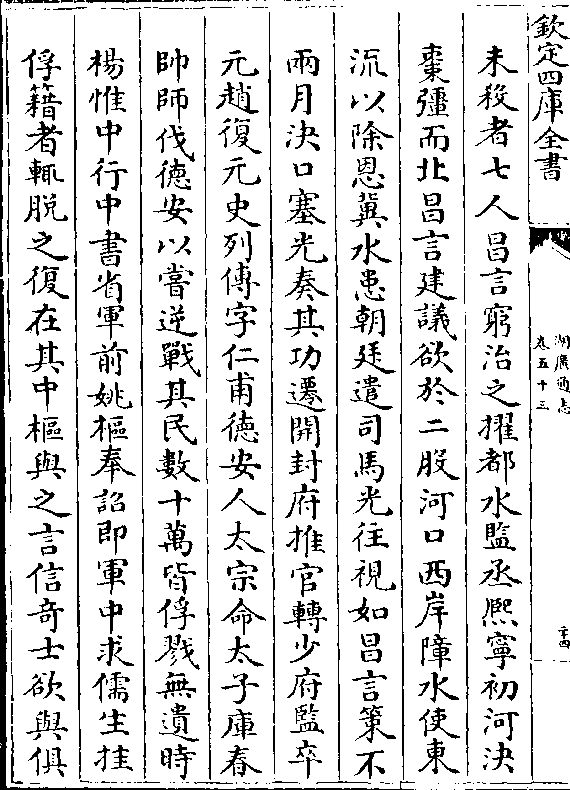 欽定四庫全書
湖廣通志
卷五十三
未殺者七人昌言窮治之擢都水監丞熈寧初河決
棗彊而北昌言建議欲於二股河口西岸障水使東
流以除恩冀水患朝廷遣司馬光往視如昌言策不
兩月決口塞光奏其功遷開封府推官轉少府監卒
元趙復元史列傳字仁甫德安人太宗命太子庫春
帥師伐德安以嘗逆戰其民數十萬皆俘戮無遺時
楊惟中行中書省軍前姚樞奉詔即軍中求儒生挂
俘籍者輒脫之復在其中樞與之言信奇士欲與俱